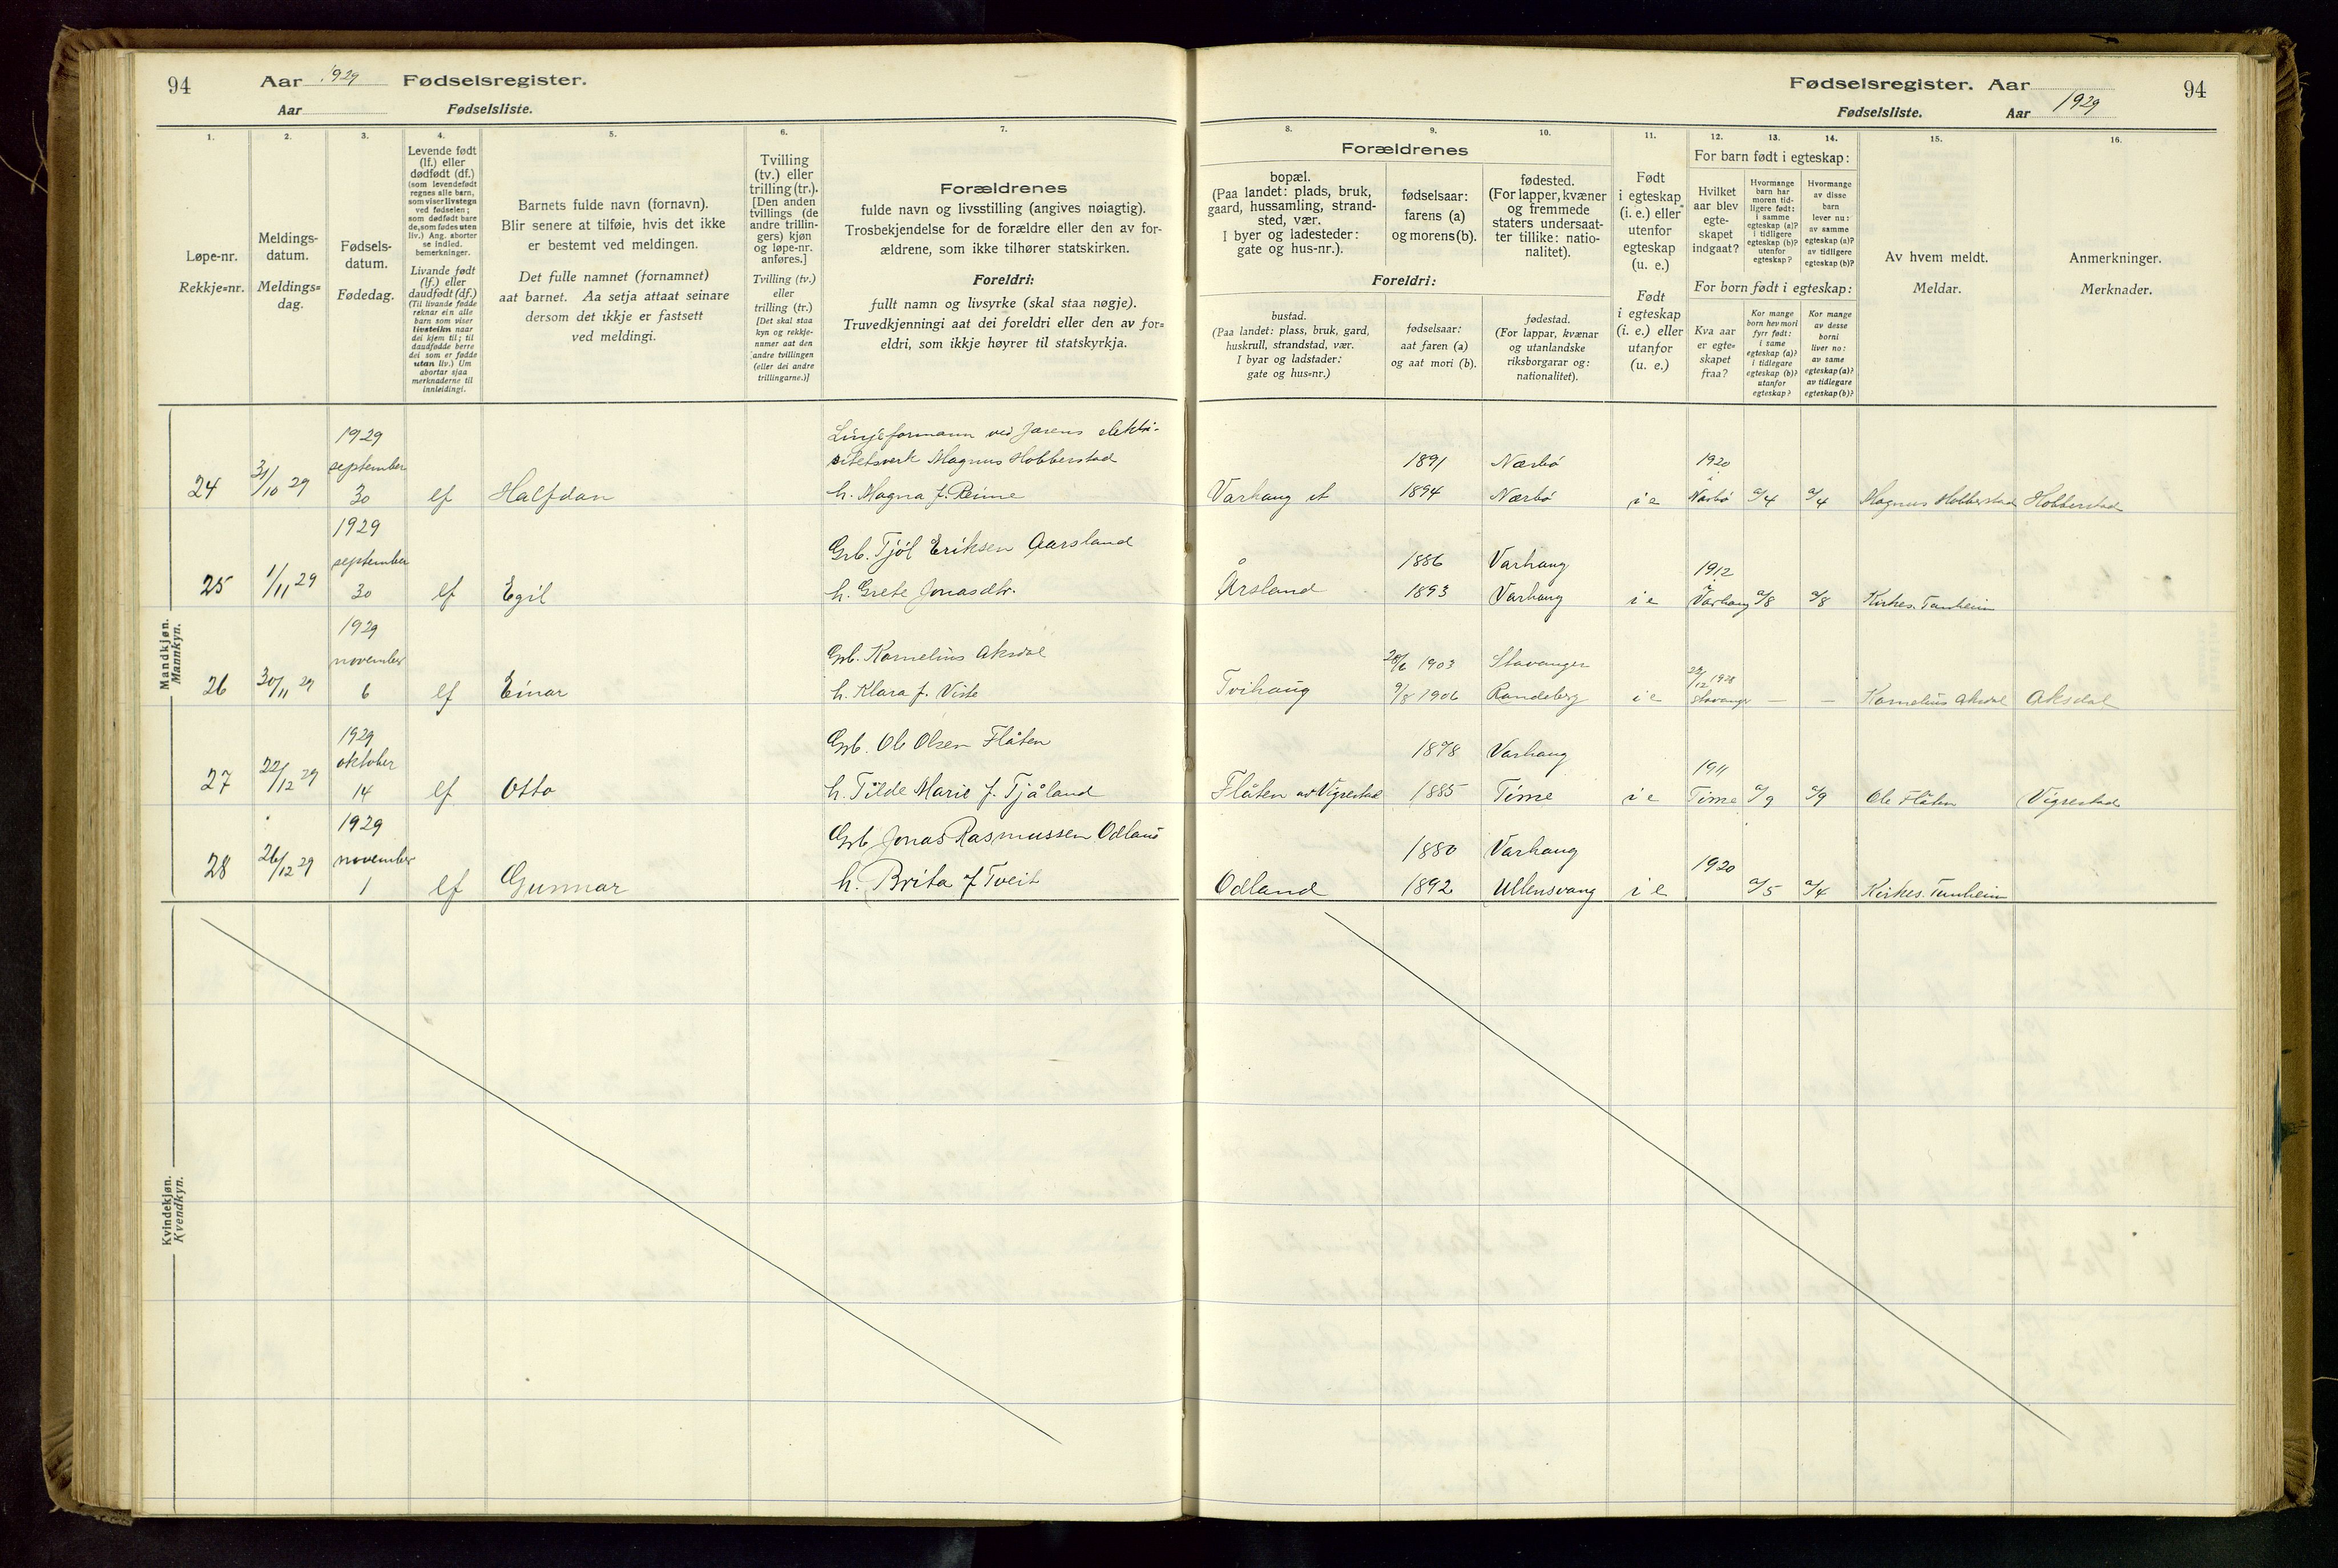 94
Aar 1929 Fødselsregister.
Aar Fødselsliste.
1.
Løpe-nr.
Rekkje=nr.
2.
Meldings-
datum.
Meldings=
dag.
3.
Fødsels-
datum.
Fødedag.
4.
Levende født
(lf.) eller
dødfødt (df.)
(som levendefødt
regnes alle barn,
som viser livstegn
ved fødselen;
som dødfødt bare
de, som fødes uten
liv.) Ang. aborter
se indled.
bemerkninger.
Livande født
(lf.) eller
daudfødt (df.)
(Til livande fødde
reknar ein alle
barn som viser
livsteikn naar
dei kjem til; til
daudfødde berre
dei som er fødde
utan liv.) Um
abortar sjaa
merknaderne til
innleidingi.
5.
Barnets fulde navn (fornavn).
Blir senere at tilføie, hvis det ikke
er bestemt ved meldingen.
Det fulle namnet (fornamnet)
aat barnet. Aa setja attaat seinare
dersom det ikkje er fastsett
ved meldingi.
6.
Tvilling
(tv.) eller
trilling (tr.).
[Den anden
tvillings (de
andre trillin-
gers) kjøn
og løpe-nr.
anføres.]
Tvilling (tv.)
eller
trilling (tr.)
[Det skal staa
kyn og rekkje-
numer aat den
andre tvillingen
(eller dei andre
trillingarne.)]
7.
Forældrenes
fulde navn og livsstilling (angives nøiagtig).
Trosbekjendelse for de forældre eller den av for-
ældrene, som ikke tilhører statskirken.
Foreldri:
fullt namn og livsyrke (skal staa nøgje).
Truvedkjenningi aat dei foreldri eller den av for=
eldri, som ikkje høyrer til statskyrkja.
Mandkjøn.
Mannkyn.
24 31/10 29 1929 september 30 lf Halfdan
Linjeformann ved Jærens elektri-
sitetsverk Magnus Hobberstad
h. Magna f. Reime
25 1/11 29 1929 september 30 lf Egil
Grb. Tjøl Eriksen Aarsland
h. Grete Jonasdtr.
26 30/11 29 1929 november 6 lf Einar
Grb. Kornelius Aksdal
h. Klara f. Viste
27 22/12 29 1929 oktober 14 lf Otto
Grb. Ole Olsen Flåten
h. Tilde Marie f. Tjåland
28 26/12 29 1929 november 1 lf Gunnar
Grb Jonas Rasmussen Odland
h. Brita f Tveit
Kvindekjøn.
Kvendkyn.
Fødselsregister. Aar
94
Fødselsliste. Aar 1929
8.
Forældrenes
bopæl.
(Paa landet: plads, bruk,
gaard, hussamling, strand-
sted, vær.
I byer og ladesteder:
gate og hus-nr.).
Foreldri:
bustad.
(Paa landet: plass, bruk, gard,
huskrull, strandstad, vær.
I byar og ladstader:
gate og hus=nr.)
9.
fødselsaar:
farens (a)
og morens (b).
fødselsaar:
aat faren (a)
og aat mori (b).
10.
fødested.
(For lapper, kvæner
og fremmede
staters undersaat-
ter tillike: natio-
nalitet).
fødestad.
(For lappar, kvænar
og utanlandske
riksborgarar og:
nationalitet).
11.
Født
i egteskap
(i. e.) eller
utenfor
egteskap
(u. e.)
Født
i egteskap
(i. e.) eller
utanfor
(u. e.)
12. 13. 14.
For barn født i egteskap:
Hvilket
aar blev
egte-
skapet
indgaat?
Hvormange
barn har
moren tid-
ligere født:
i samme
egteskap (a)?
i tidligere
egteskap (b)?
utenfor
egteskap?
Hvormange
av disse
barn
lever nu:
av samme
egteskap (a)?
av tidligere
egteskap (b)?
For born født i egteskap:
Kva aar
er egte=
skapet
fraa?
Kor mange
born hev mori
fyrr født:
i same
egteskap (a)?
i tidlegare
egteskap (b)?
utanfor
egteskap?
Kor mange
av desse
borni
liver no:
av same
egteskap (a)?
av tidlegare
egteskap (b)?
15.
Av hvem meldt.
Meldar.
16.
Anmerkninger.
Merknader.
1891 Nærbø 1920
Varhaug st 1894 Nærbø i e i Nærbø a/4 a/4 Magnus Hobberstad Hobberstad
1886 Varhaug 1912
Årsland 1893 Varhaug i e i Varhaug a/8 a/8 Kirkes. Tunheim
28/6 1903 Stavanger 22/12 1928
Tvihaug 9/8 1906 Randeberg i e Stavanger — — Kornelius Aksdal Aksdal
1878 Varhaug 1911
Flåten av Vigrestad 1885 Time i e Time a/9 a/9 Ole Flåten Vigrestad
1880 Varhaug 1920
Odland 1892 Ullensvang i e a/5 a/4 Kirkes. Tunheim